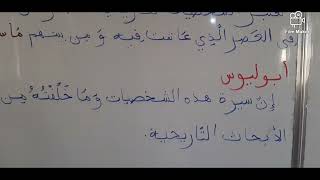 في العصر الذي عاشت فيه و من بينهم ماس
أبوليوس
إن سيرة هذه الشخصيات وما خلفته من
الأبحاث التاريخية.
Film Maker